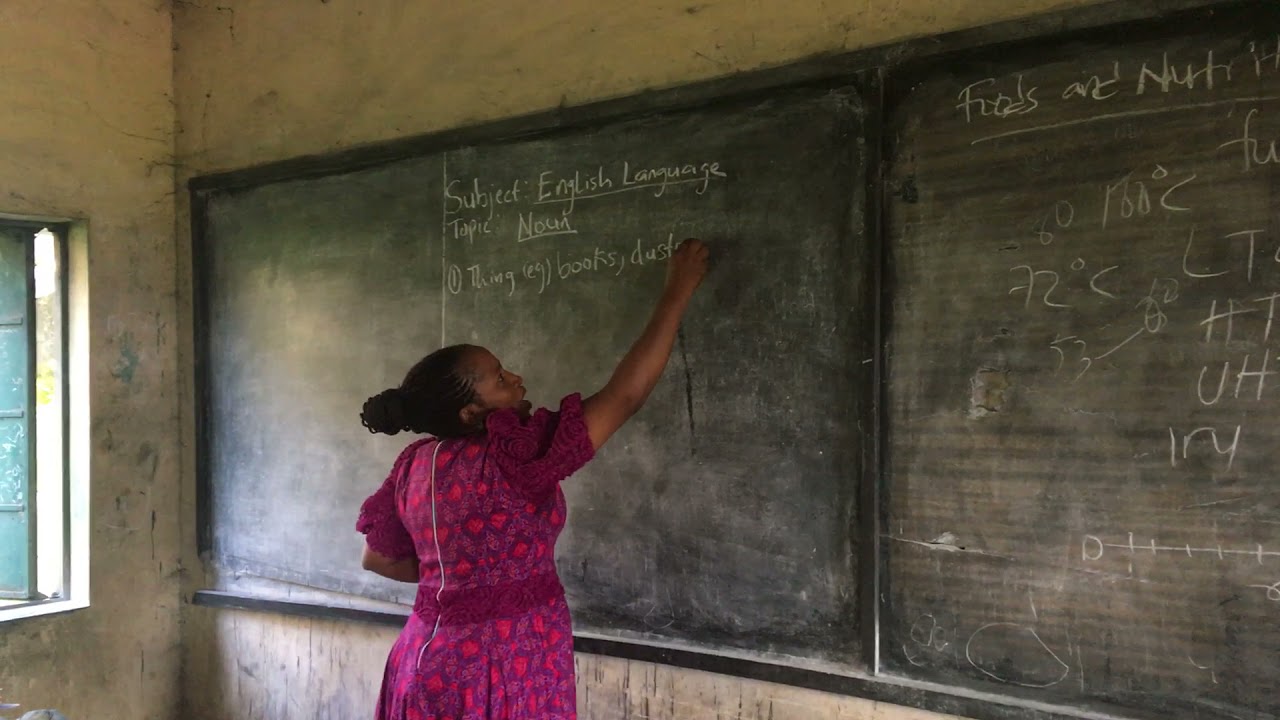 Subject: English Language
Topic: Noun
① Thing (eg) books, dust
Foods and Nutrit
fu
60 100°C
LT
72°C
53 60
HT
UHT
Iry
0